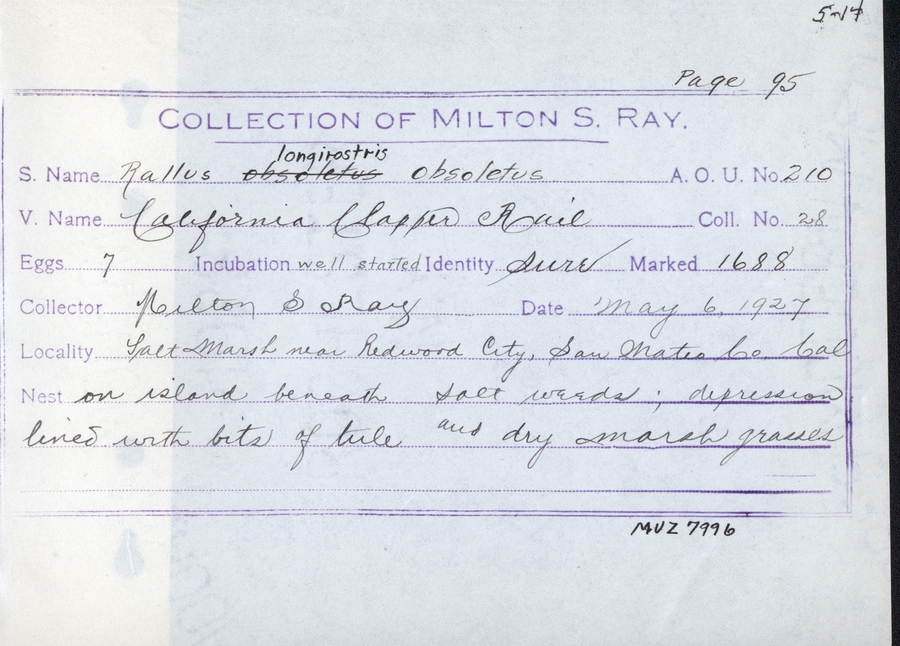 5-17
Page 95
COLLECTION OF MILTON S. RAY.
longirostris
S. Name Rallus obsoletus obsoletus A. O. U. No. 210
V. Name California Clapper Rail Coll. No. 28
Eggs 7 Incubation well started Identity Sure Marked 1688
Collector Milton S Ray Date May 6, 1927
Locality Salt Marsh near Redwood City, San Mateo Co Cal
Nest on island beneath salt weeds; depression
lined with bits of tule and dry marsh grasses
MVZ 7996